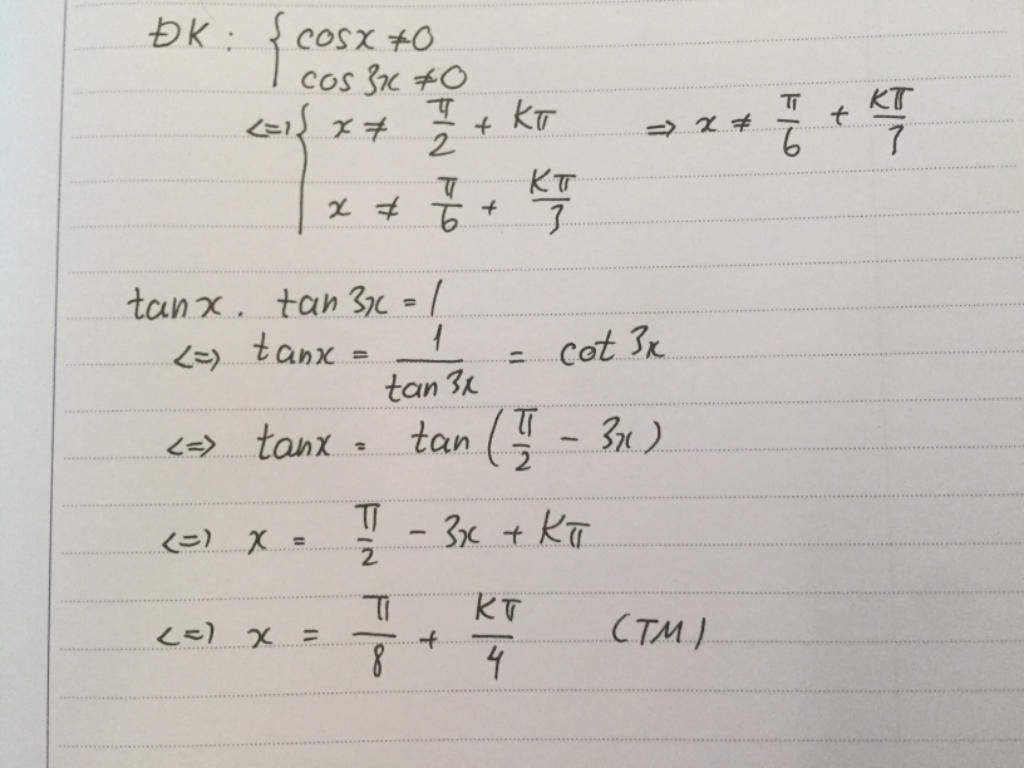 ĐK: { cosx ≠ 0
cos 3x ≠ 0
<=> { x ≠ π/2 + kπ => x ≠ π/6 + kπ/3
x ≠ π/6 + kπ/3
tanx . tan 3x = 1
<=> tanx = 1/tan 3x = cot 3x
<=> tanx = tan (π/2 - 3x)
<=> x = π/2 - 3x + kπ
<=> x = π/8 + kπ/4 (TM)